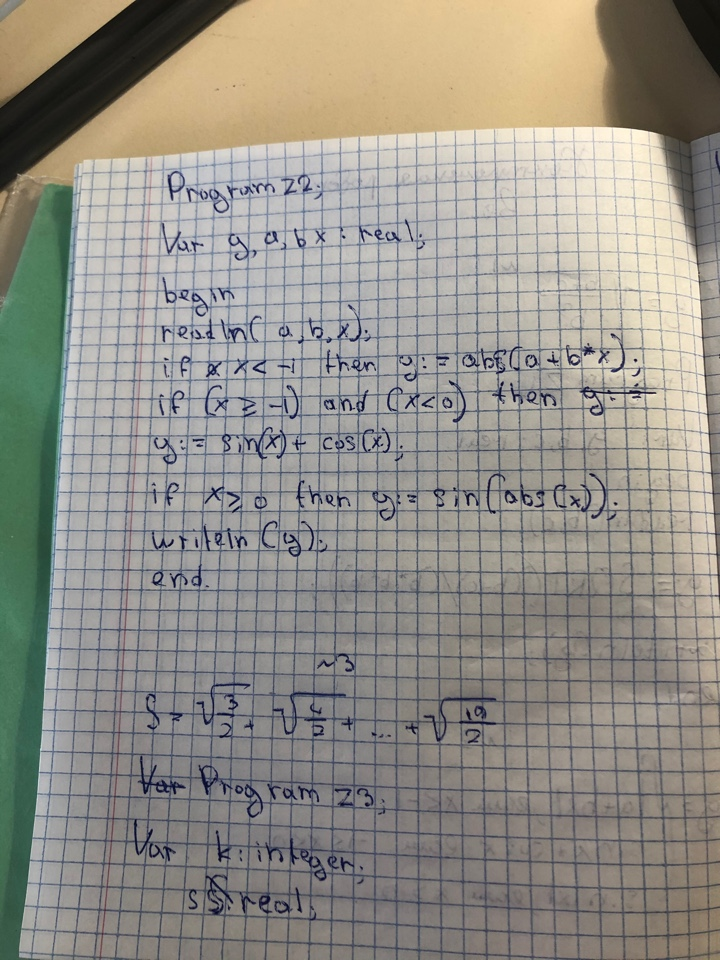 Program z2;
Var y, a, b x : real;
begin
readln( a, b, x);
if x < -1 then y := abs(a + b*x);
if (x ≥ -1) and (x<0) then y :=
y := sin(x) + cos(x);
if x ≥ 0 then y := sin(abs(x));
writeln (y);
end.
~3
S = √3/2 + √4/2 + ... + √19/2
Var Program z3;
Var k : integer;
s : real;